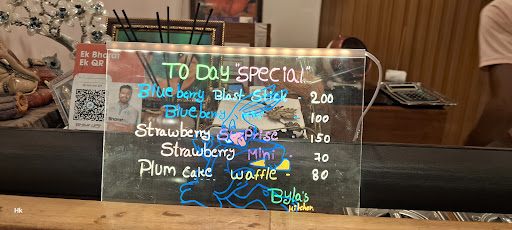 Ek Bharat
Ek QR
TO DAY "SPECIAL"
Blueberry Blast Stick 200
Blueberry Mini 100
Strawberry Sr Prise 150
Strawberry Mini 70
Plum Cake Waffle - 80
Byla's
Kitchen
Hk